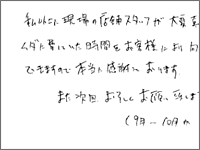 私以上に現場の店舗スタッフが大変
に費していた時間をお客様により
できますので本当に感謝しております
また次回よろしくお願い致します
(9月〜10月か